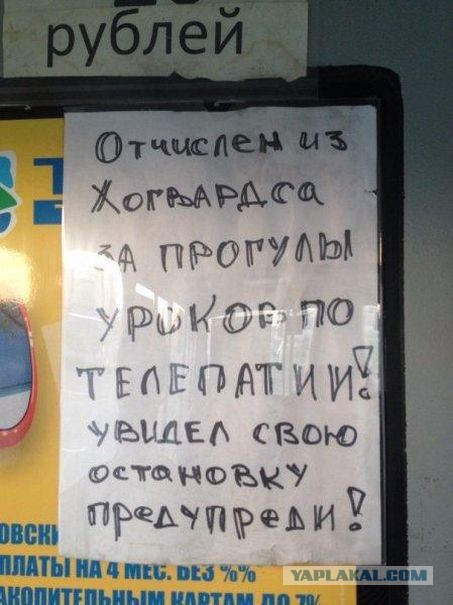 рублей
Отчислен из
Хогвардса
за прогулы
уроков по
телепатии!
увидел свою
остановку
предупреди!
платы на 4 мес. без %%
YAPLAKAL.COM